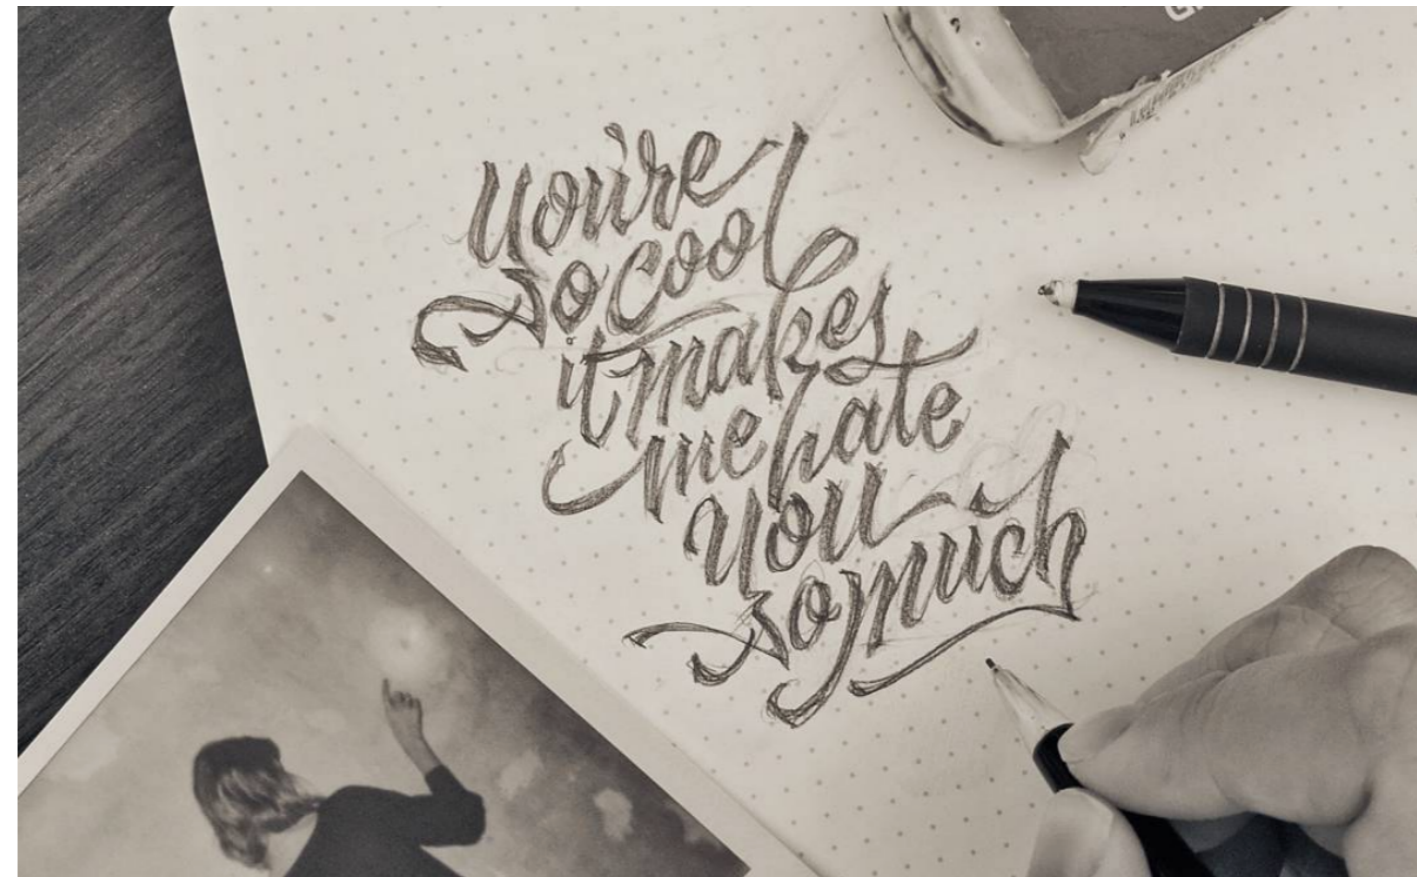 you're
so cool
it makes
me hate
you
so much